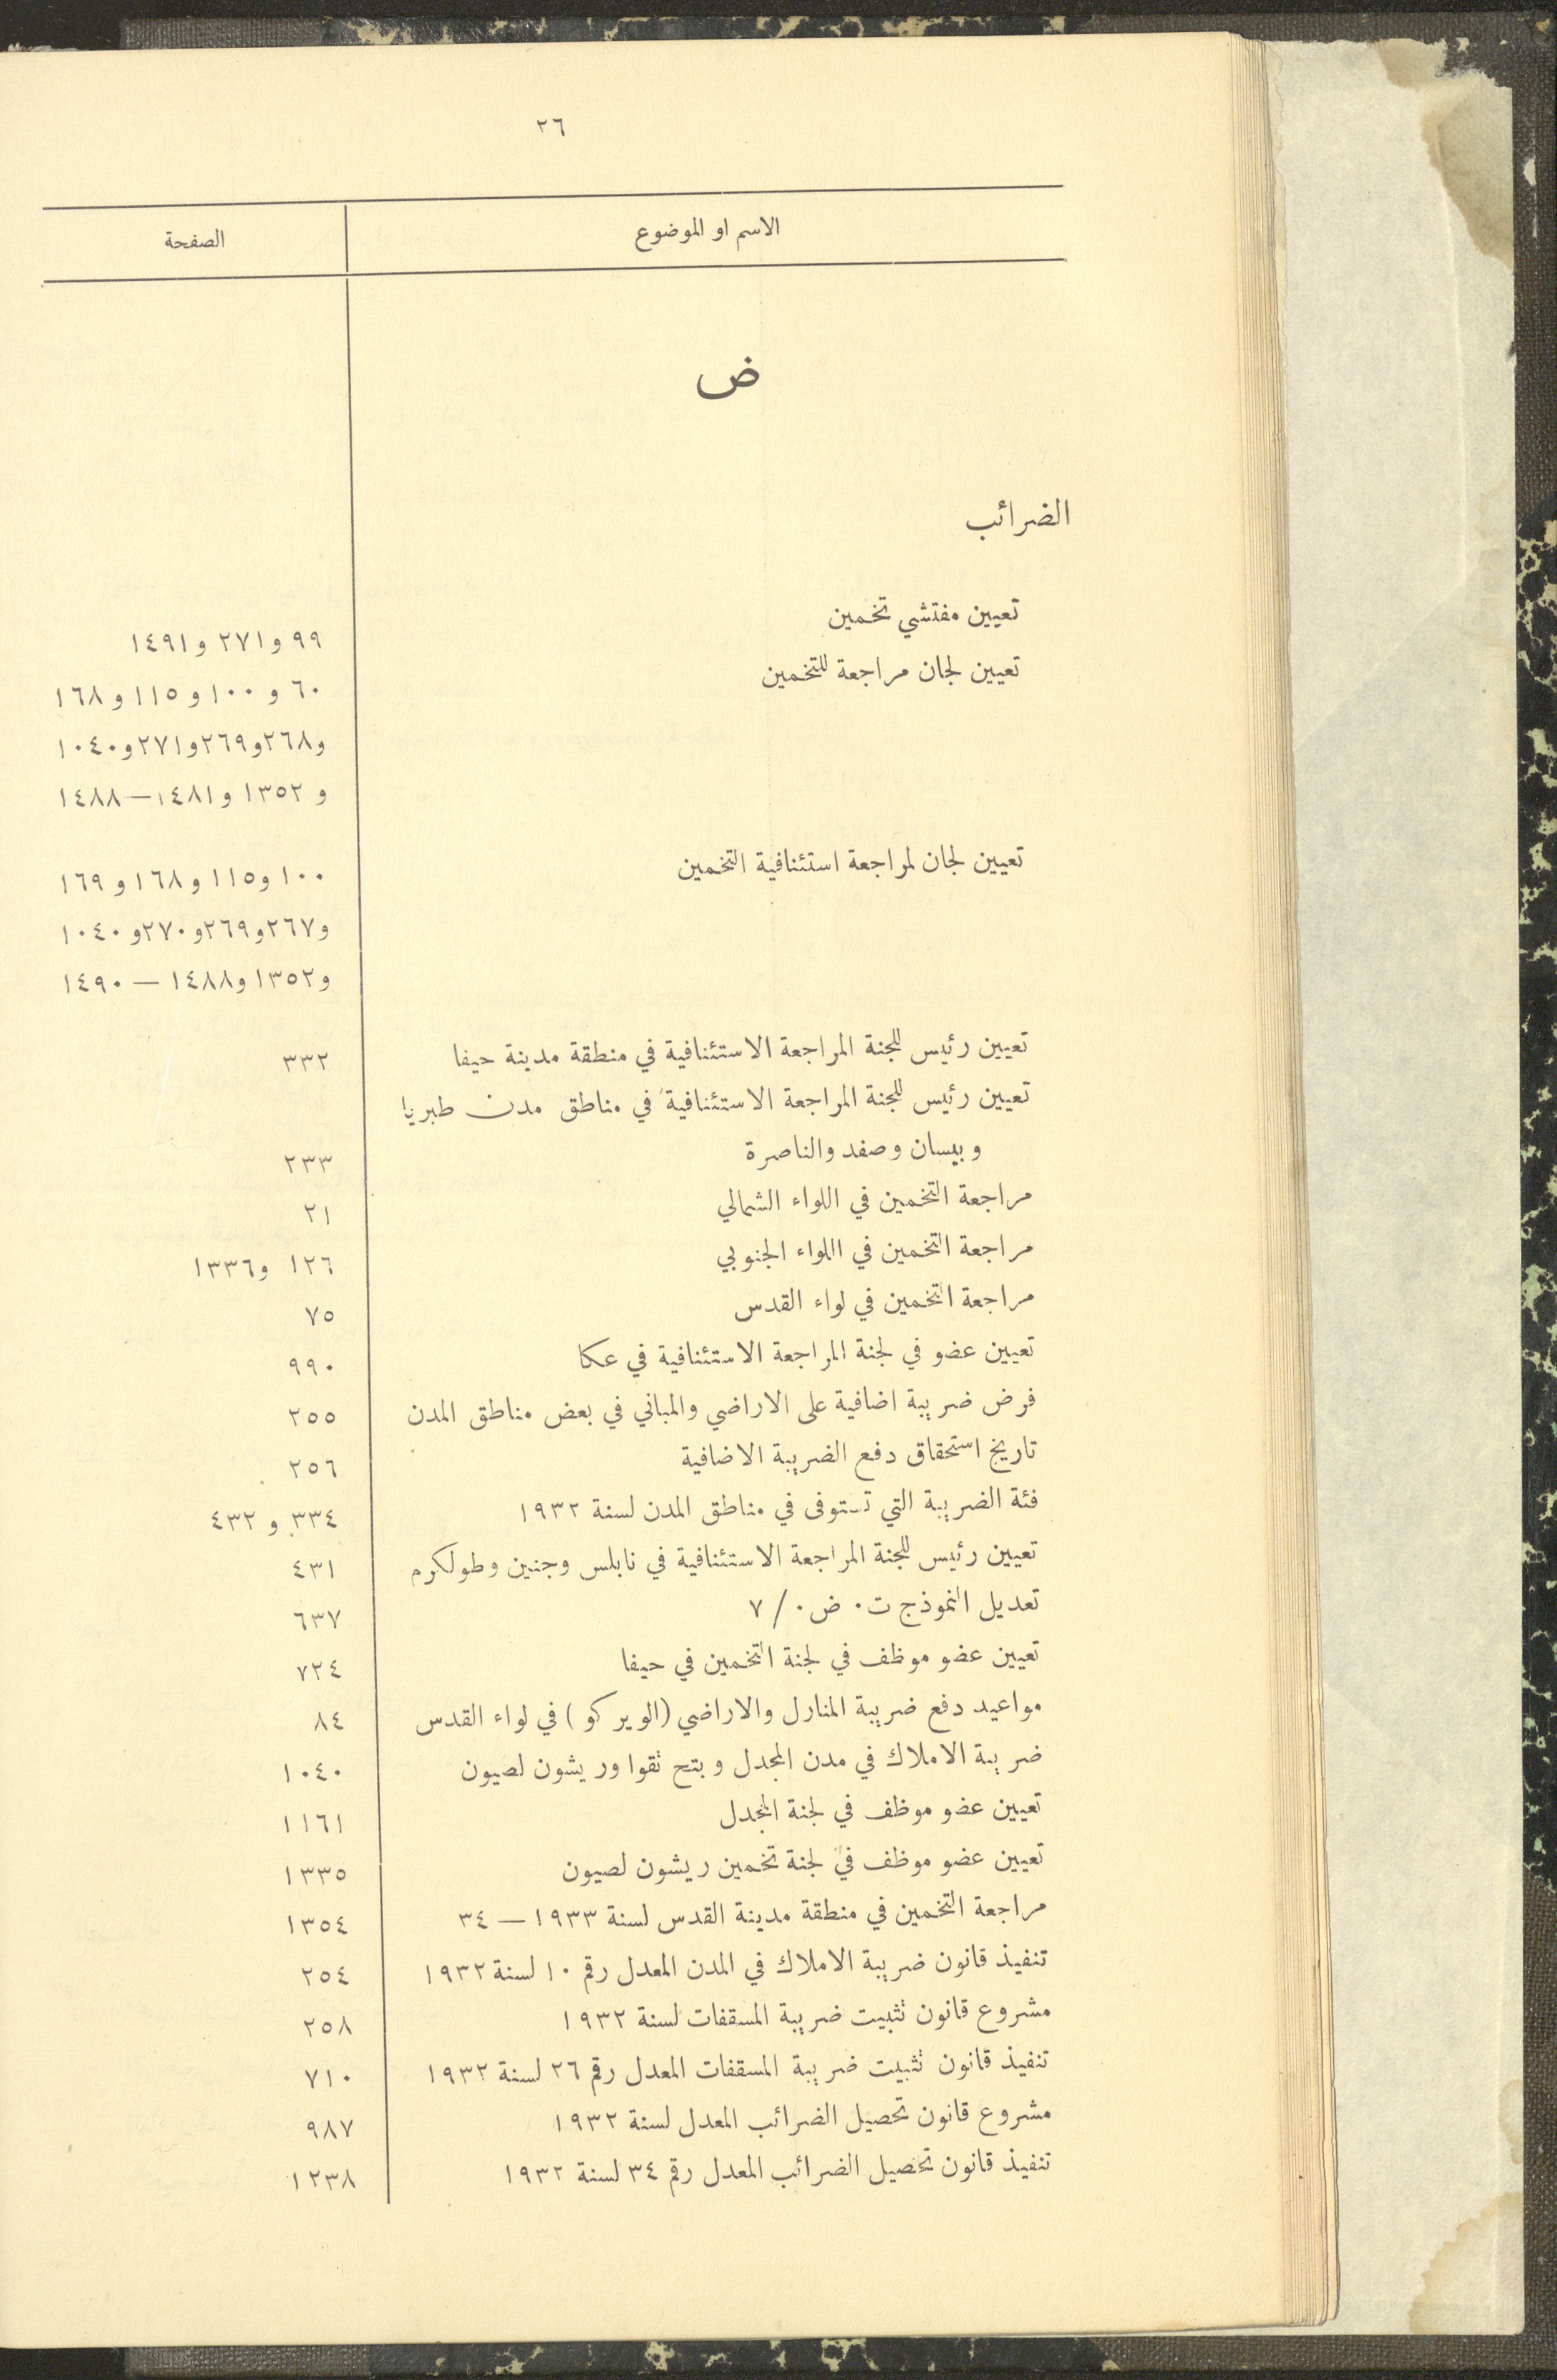 ٢٦
الاسم او الموضوع الصفحة
ض
الضرائب
تعيين مفتشي تخمين ٩٩ و٢٧١ و١٤٩١
تعيين لجان مراجعة للتخمين ٦٠ و ١٠٠ و ١١٥ و ١٦٨
و٢٦٨ و٢٦٩ و٢٧١ و١٠٤٠
و ١٣٥٢ و١٤٨١—١٤٨٨
تعيين لجان لمراجعة استئنافية التخمين ١٠٠ و١١٥ و١٦٨ و ١٦٩
و٢٦٧ و٢٦٩ و٢٧٠ و١٠٤٠
و١٣٥٢ و١٤٨٨ — ١٤٩٠
تعيين رئيس للجنة المراجعة الاستئنافية في منطقة مدينة حيفا ٣٣٢
تعيين رئيس للجنة المراجعة الاستئنافية في مناطق مدن طبريا
وبيسان وصفد والناصرة ٢٣٣
مراجعة التخمين في اللواء الشمالي ٢١
مراجعة التخمين في اللواء الجنوبي ١٢٦ و١٣٣٦
مراجعة التخمين في لواء القدس ٧٥
تعيين عضو في لجنة المراجعة الاستئنافية في عكا ٩٩٠
فرض ضريبة اضافية على الاراضي والمباني في بعض مناطق المدن ٢٥٥
تاريخ استحقاق دفع الضريبة الاضافية ٢٥٦
فئة الضريبة التي تستوفى في مناطق المدن لسنة ١٩٣٢ ٣٣٤ و ٤٣٢
تعيين رئيس للجنة المراجعة الاستئنافية في نابلس وجنين وطولكرم ٤٣١
تعديل النموذج ت. ض. / ٧ ٦٣٧
تعيين عضو موظف في لجنة التخمين في حيفا ٧٢٤
مواعيد دفع ضريبة المنازل والاراضي (الويركو) في لواء القدس ٨٤
ضريبة الاملاك في مدن المجدل وبتح تقوا وريشون لصيون ١٠٤٠
تعيين عضو موظف في لجنة المجدل ١١٦١
تعيين عضو موظف في لجنة تخمين ريشون لصيون ١٣٣٥
مراجعة التخمين في منطقة مدينة القدس لسنة ١٩٣٣ — ٣٤ ١٣٥٤
تنفيذ قانون ضريبة الاملاك في المدن المعدل رقم ١٠ لسنة ١٩٣٢ ٢٥٤
مشروع قانون تثبيت ضريبة المسقفات لسنة ١٩٣٢ ٢٥٨
تنفيذ قانون تثبيت ضريبة المسقفات المعدل رقم ٢٦ لسنة ١٩٣٢ ٧١٠
مشروع قانون تحصيل الضرائب المعدل لسنة ١٩٣٢ ٩٨٧
تنفيذ قانون تحصيل الضرائب المعدل رقم ٣٤ لسنة ١٩٣٢ ١٢٣٨